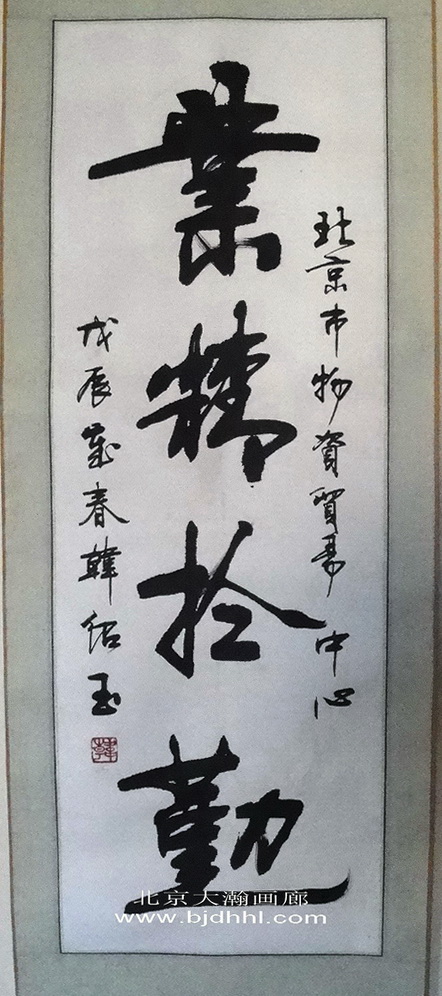 北京市物資貿易中心
業精扵勤
戊辰春韓紹玉
北京大瀚画廊
www.bjdhhl.com